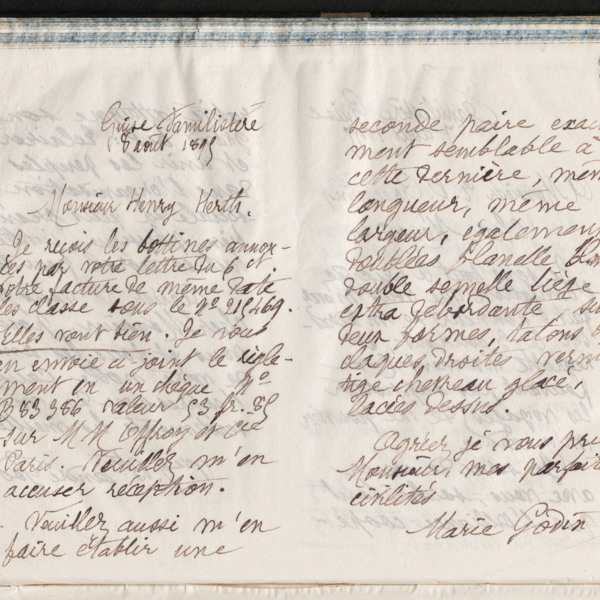 Guise Familistère
8 août 1895
Monsieur Henry Herth.
Je reçois les bottines annon-
cées par votre lettre du 6 et
votre facture de même date
les classe sous le Nº 215469.
Elles vont bien. Je vous
en envoie ci-joint le règle-
ment en un chèque Nº
B 83386 valeur 53 fr. 85
sur MM Offroy et Cie
Paris. Veuillez m'en
accuser réception.
Veuillez aussi m'en
faire établir une
seconde paire exac
ment semblable à
cette dernière, mêm
longueur, même
largeur, également
doublées flanelle
double semelle liège
extra débordante su
deux formes, talons
claques droites verni
tige chevreau glacé,
lacées dessus.
Agréez je vous pri
Monsieur, mes parfait
civilités
Marie Godin